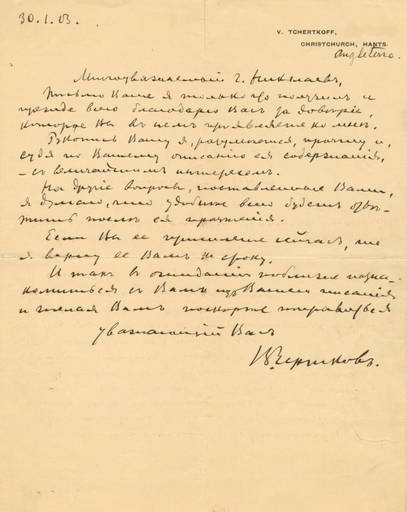 30.I.03.
V. TCHERTKOFF,
CHRISTCHURCH, HANTS.
Angleterre.
Многоуважаемый Г. Николаев,
Письмо Ваше я только что получил и
прежде всего благодарю Вас за доверие,
которое Вы в нем проявляете ко мне.
Рукопись Вашу я, разумеется, прочту и,
судя по Вашему описанию ея содержания,
– с величайшим интересом.
На другие вопросы, поставленные Вами,
я думаю, что удобнее всего будет отве-
тить после ея прочтения.
Если Вы ее пришлете сейчас, то
я верну ее Вам к сроку.
И так в ожидании поближе позна-
комиться с Вами из Вашего писания
и желая Вам поскорее поправиться
уважающий Вас
В. Чертков.